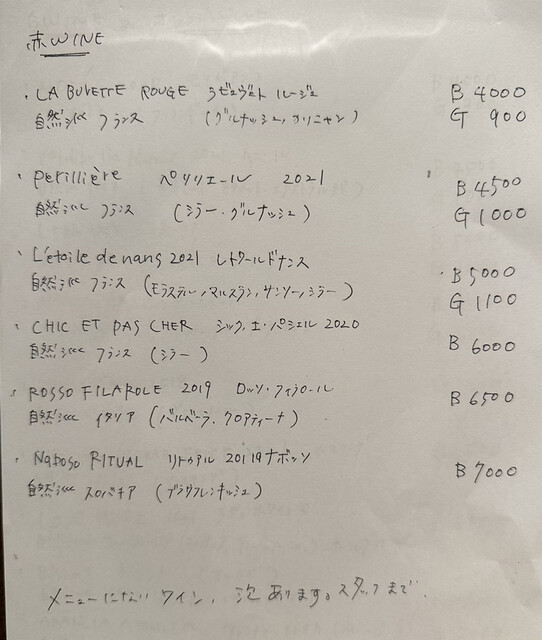 赤WINE
・LA BUVETTE ROUGE ラビュヴェット ルージュ B 4000
自然派 フランス (グルナッシュ,カリニャン) G 900
・Perillière ペリリエール 2021 B 4500
自然派 フランス (シラー・グルナッシュ) G 1000
・L'étoile de nans 2021 レトワールドナンス B 5000
自然派 フランス ( , マルスラン, サンソー, シラー) G 1100
・CHIC ET PAS CHER シック,エ・パシェル 2020 B 6000
自然派 フランス (シラー)
・ROSSO FILAROLE 2019 ロッソ・フィラロール B 6500
自然派 イタリア (バルベーラ, クロアティーナ)
・Naboso RITUAL リトゥアル 20119 ナボッソ B 7000
自然派 スロバキア (ブラウフレンキッシュ)
メニューにないワイン, 泡あります。スタッフまで.